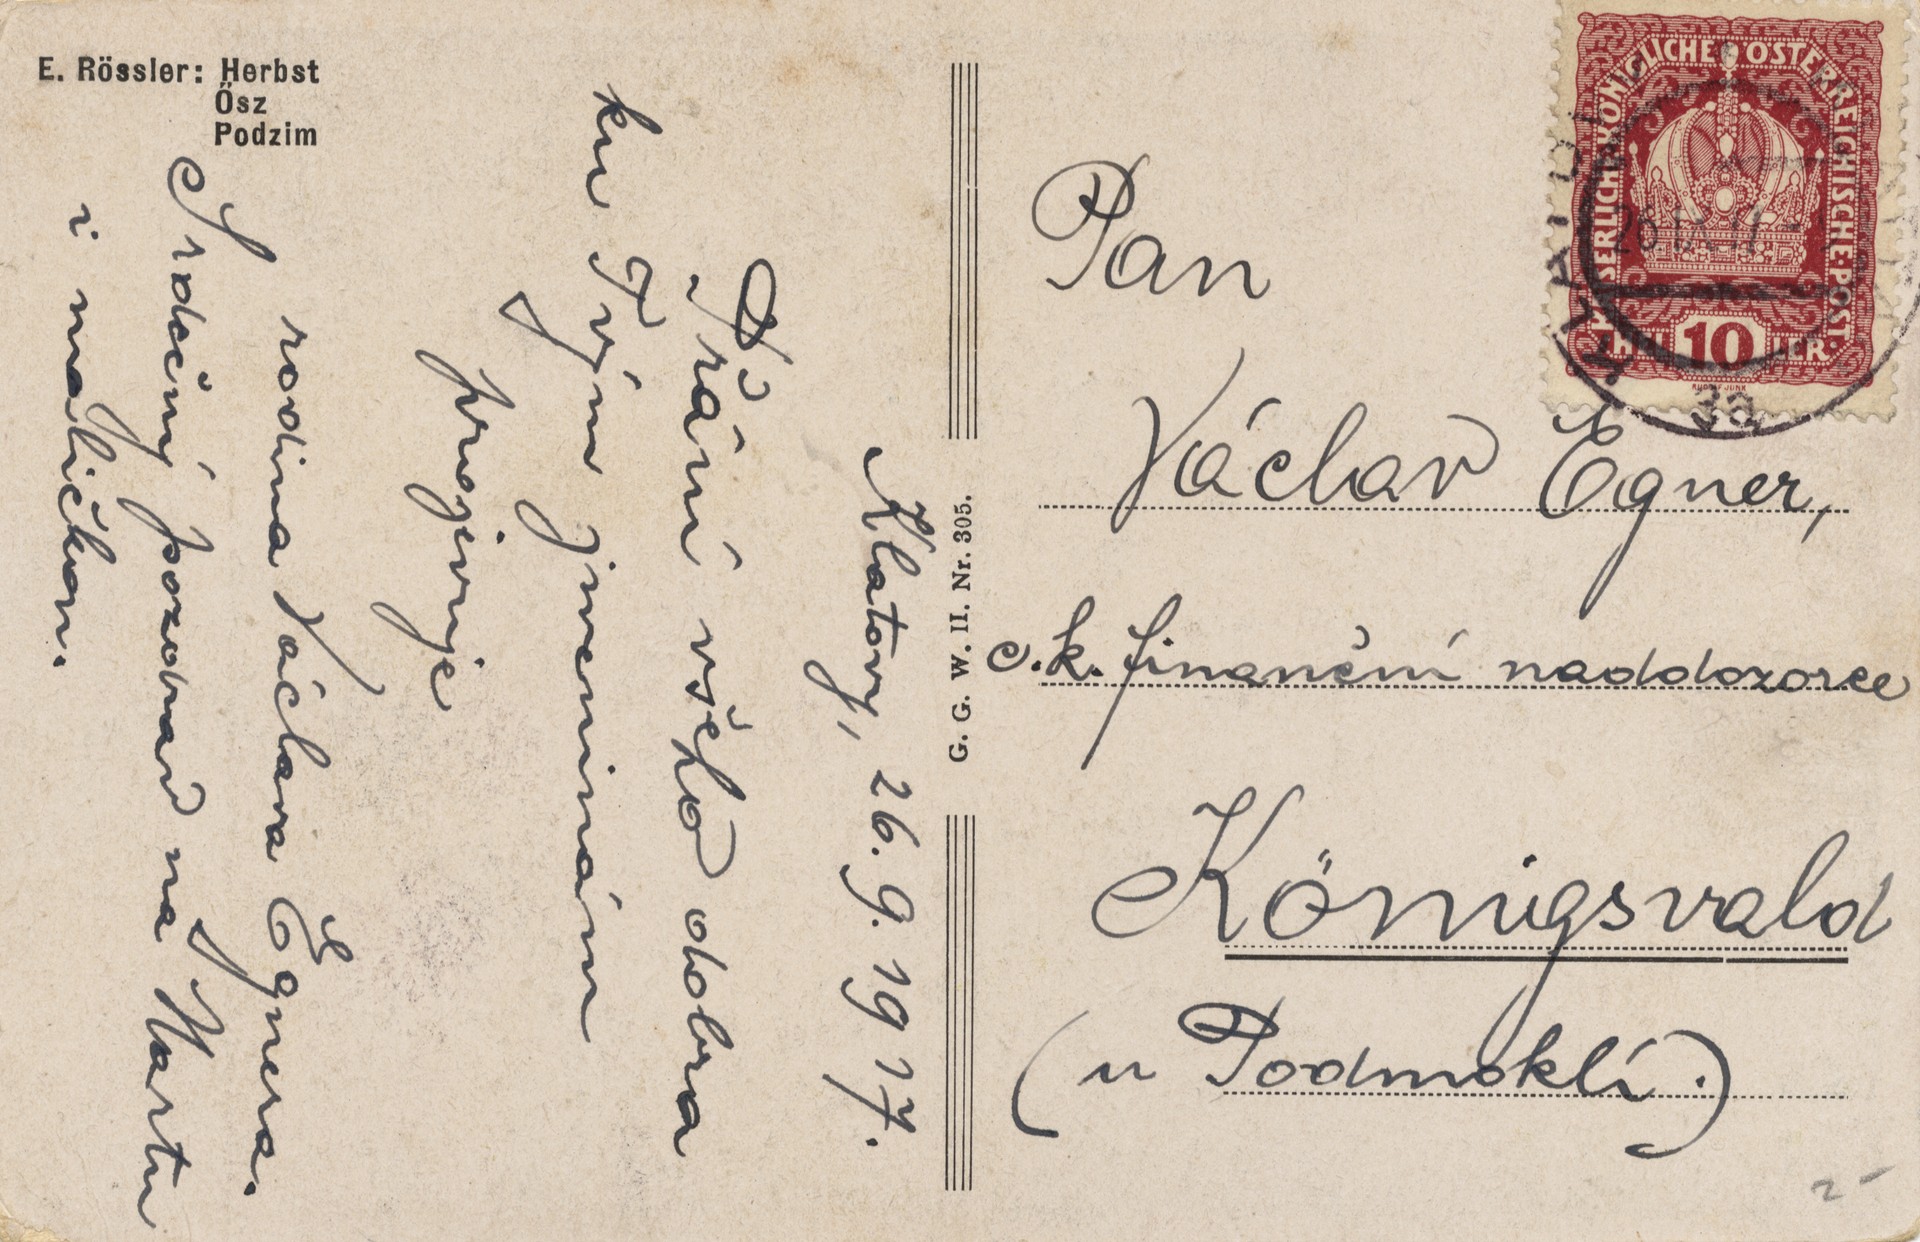 E. Rössler: Herbst
Ősz
Podzim
Klatovy, 26. 9. 1917.
Přání všeho dobra
ku Tvým jmeninám
projevuje
rodina Václava Égnera.
Srdečný pozdrav na Martu
i maličkou.
G. G. W. II. Nr. 305.
KAISERLICHE KÖNIGLICHE ÖSTERREICHISCHE POST.
HELLER
10
KLATOVY
26.IX.17
3a
Pan
Václav Egner,
c. k. finanční naddozorce
Königsvald
(u Podmoklí.)
2-